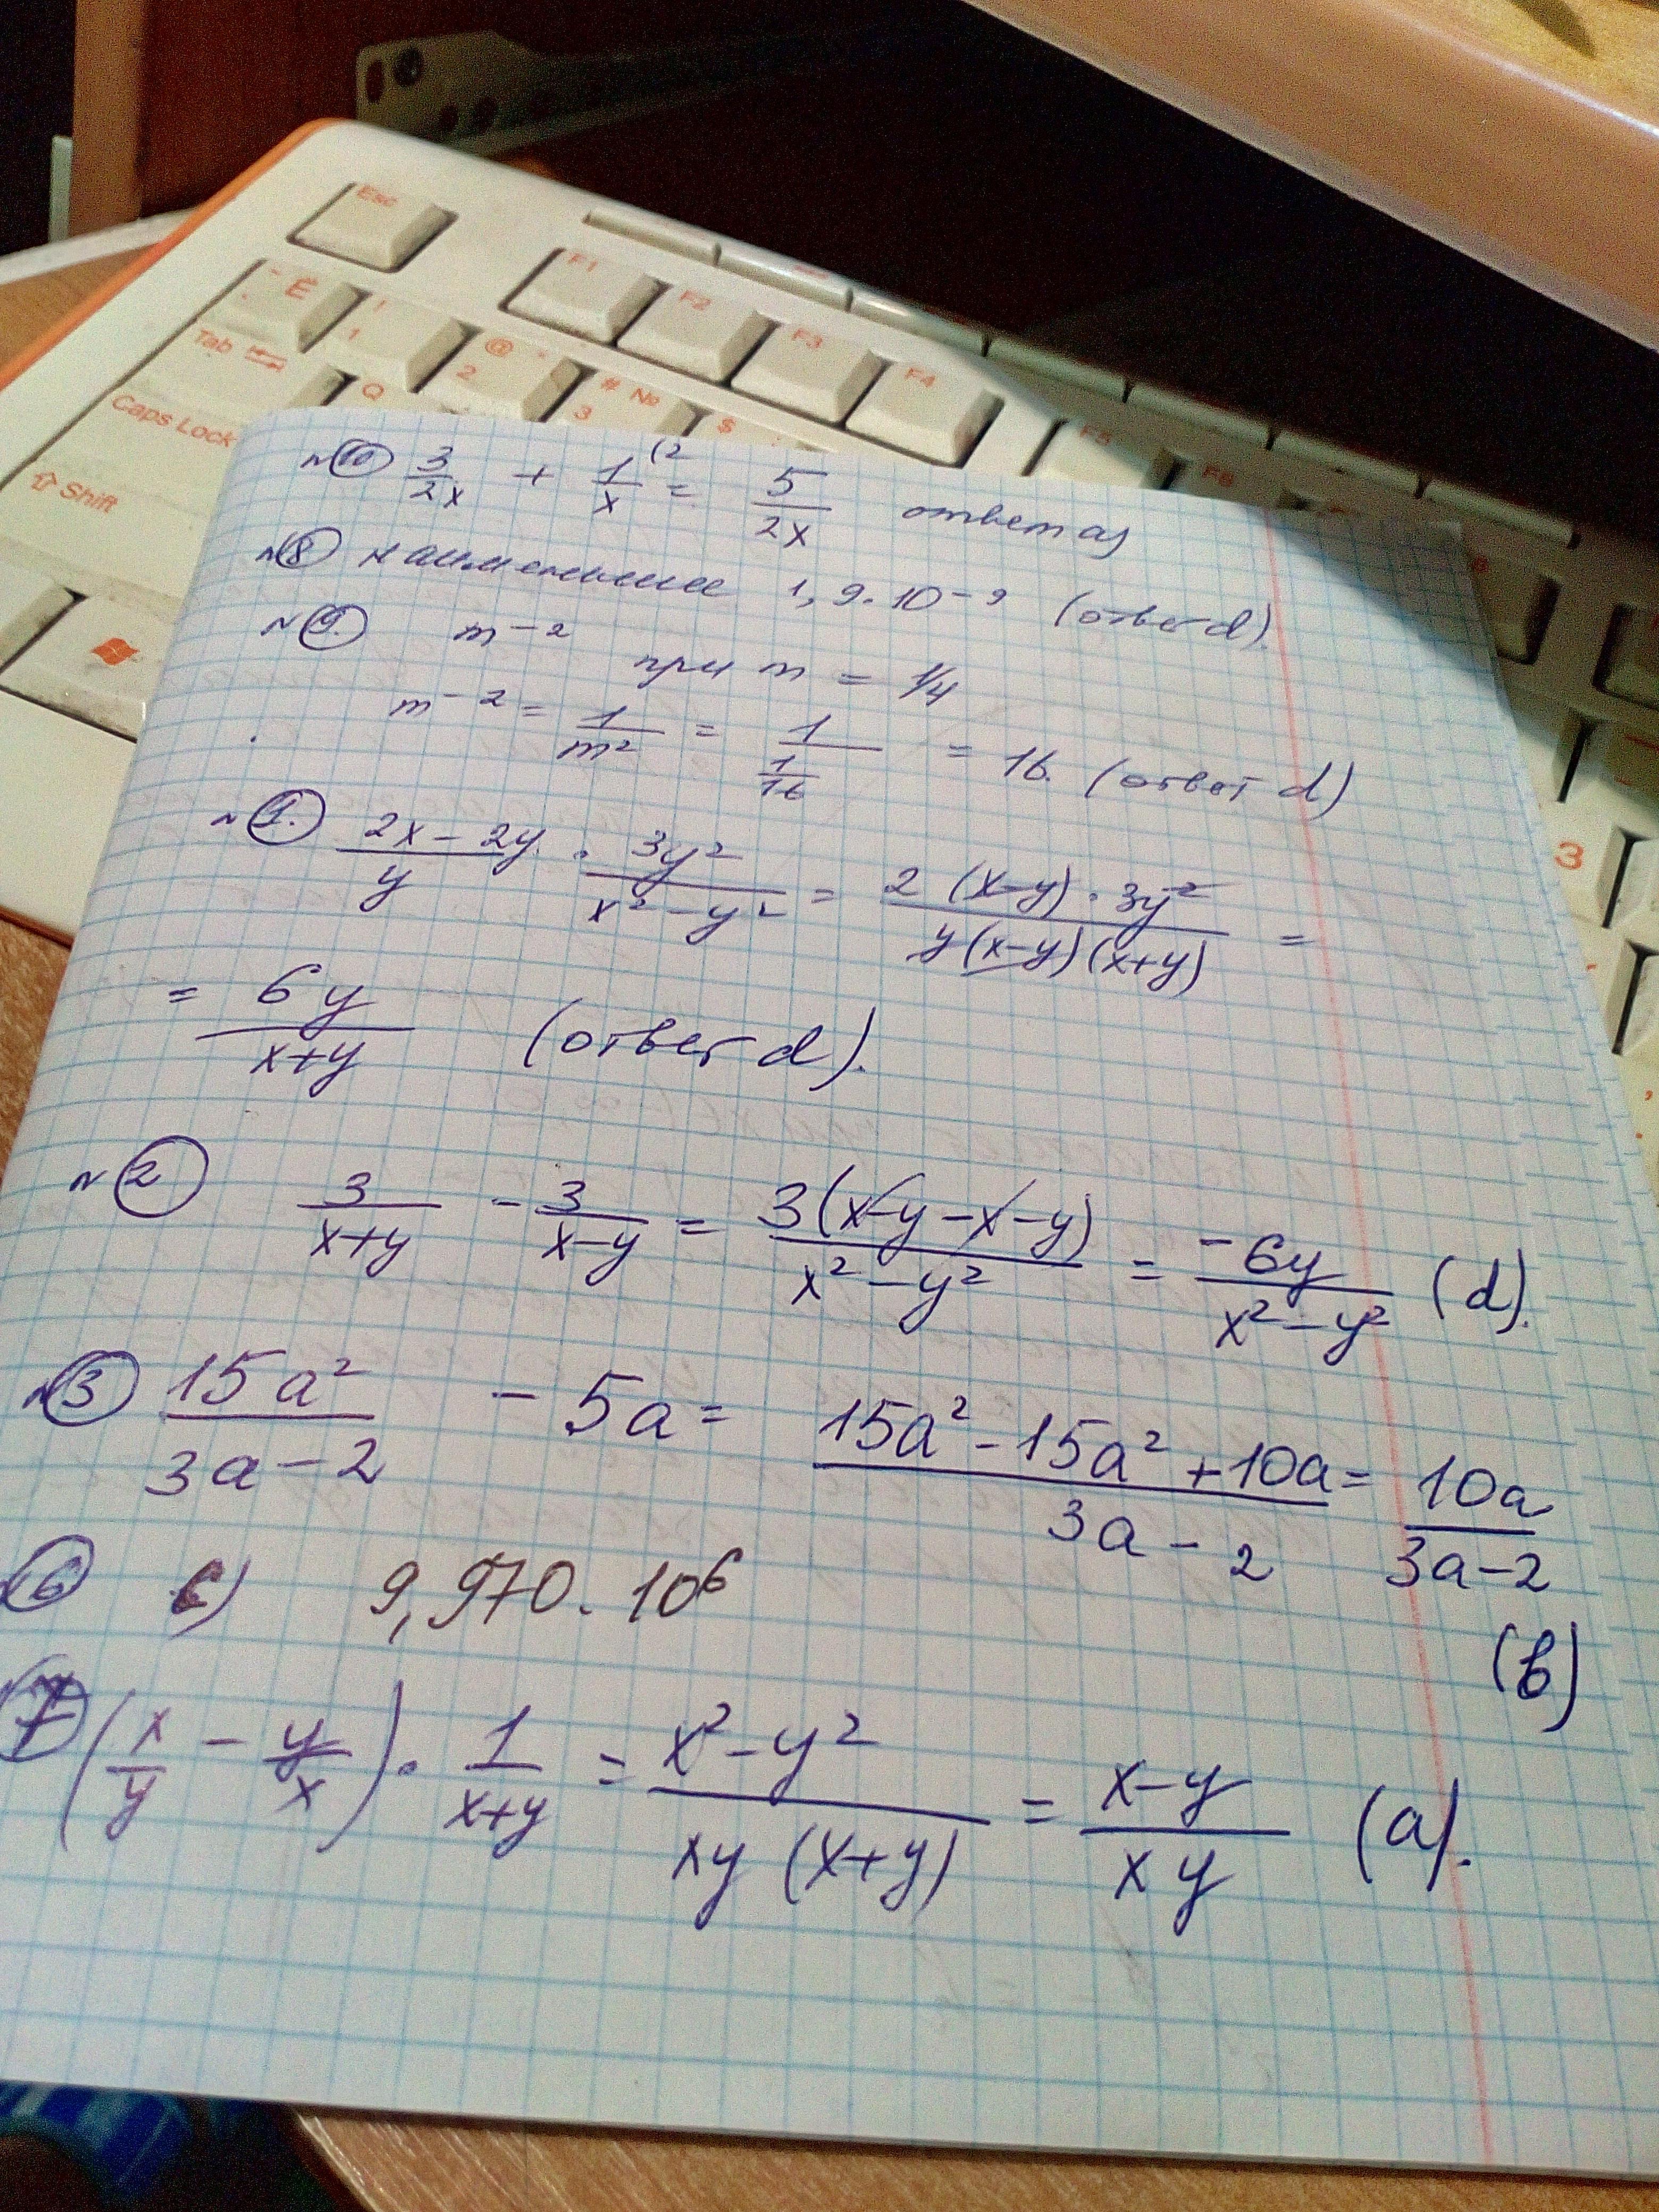 Esc
F1
F2
F3
F4
F5
F6
~ Ё
! 1
@ " 2
# № 3
$ ;
Tab
Q
Caps Lock
Shift
3
№10 3/2x + 1/x (2 = 5/2x ответ a)
№8 наименьшее 1,9·10⁻⁹ (ответ d).
№9. m⁻² при m = 1/4
m⁻² = 1/m² = 1/(1/16) = 16. (ответ d)
№1. (2x-2y)/y · 3y²/(x²-y²) = (2(x-y)·3y²)/(y(x-y)(x+y)) =
= 6y/(x+y) (ответ d).
№2 3/(x+y) - 3/(x-y) = 3(x-y-x-y)/(x²-y²) = -6y/(x²-y²) (d).
№3 15a²/(3a-2) - 5a = (15a²-15a²+10a)/(3a-2) = 10a/(3a-2)
(b)
№6 c) 9,970·10⁶
№7 (x/y - y/x) · 1/(x+y) = (x²-y²)/(xy(x+y)) = (x-y)/(xy) (a).